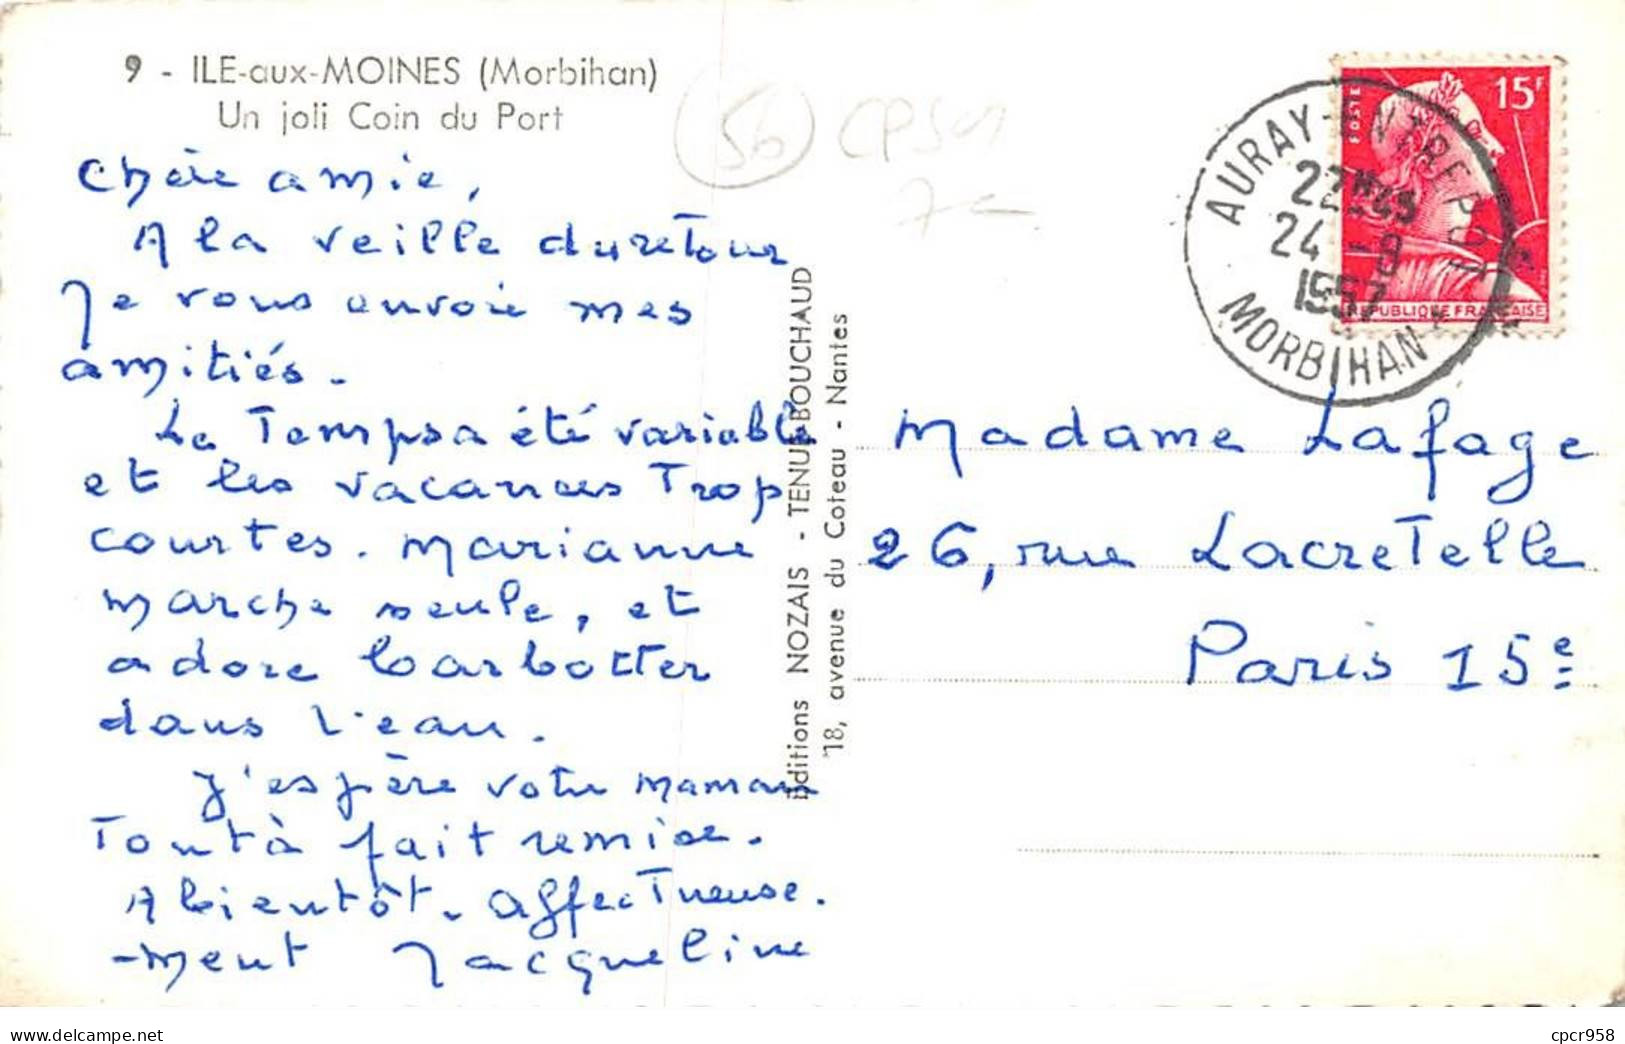 9 - ILE-aux-MOINES (Morbihan)
Un joli Coin du Port
56 CPSM
Chère amie,
A la veille du retour
Je vous envoie mes
amitiés.
Le Temps a été variable
et les vacances Trop
courtes. Marianne
marche seule, et
adore barbotter
dans l'eau.
J'espère votre maman
Tout à fait remise.
A bientôt. Affectueuse.
-ment Jacqueline
Editions NOZAIS - TENUE-BOUCHAUD
18, avenue du Coteau - Nantes
POSTES
15F
REPUBLIQUE FRANÇAISE
AURAY-ENTREPOT
22H45
24 -8
1957
MORBIHAN
Madame Lafage
26, rue Lacretelle
Paris 15e
www.delcampe.net
cpcr958